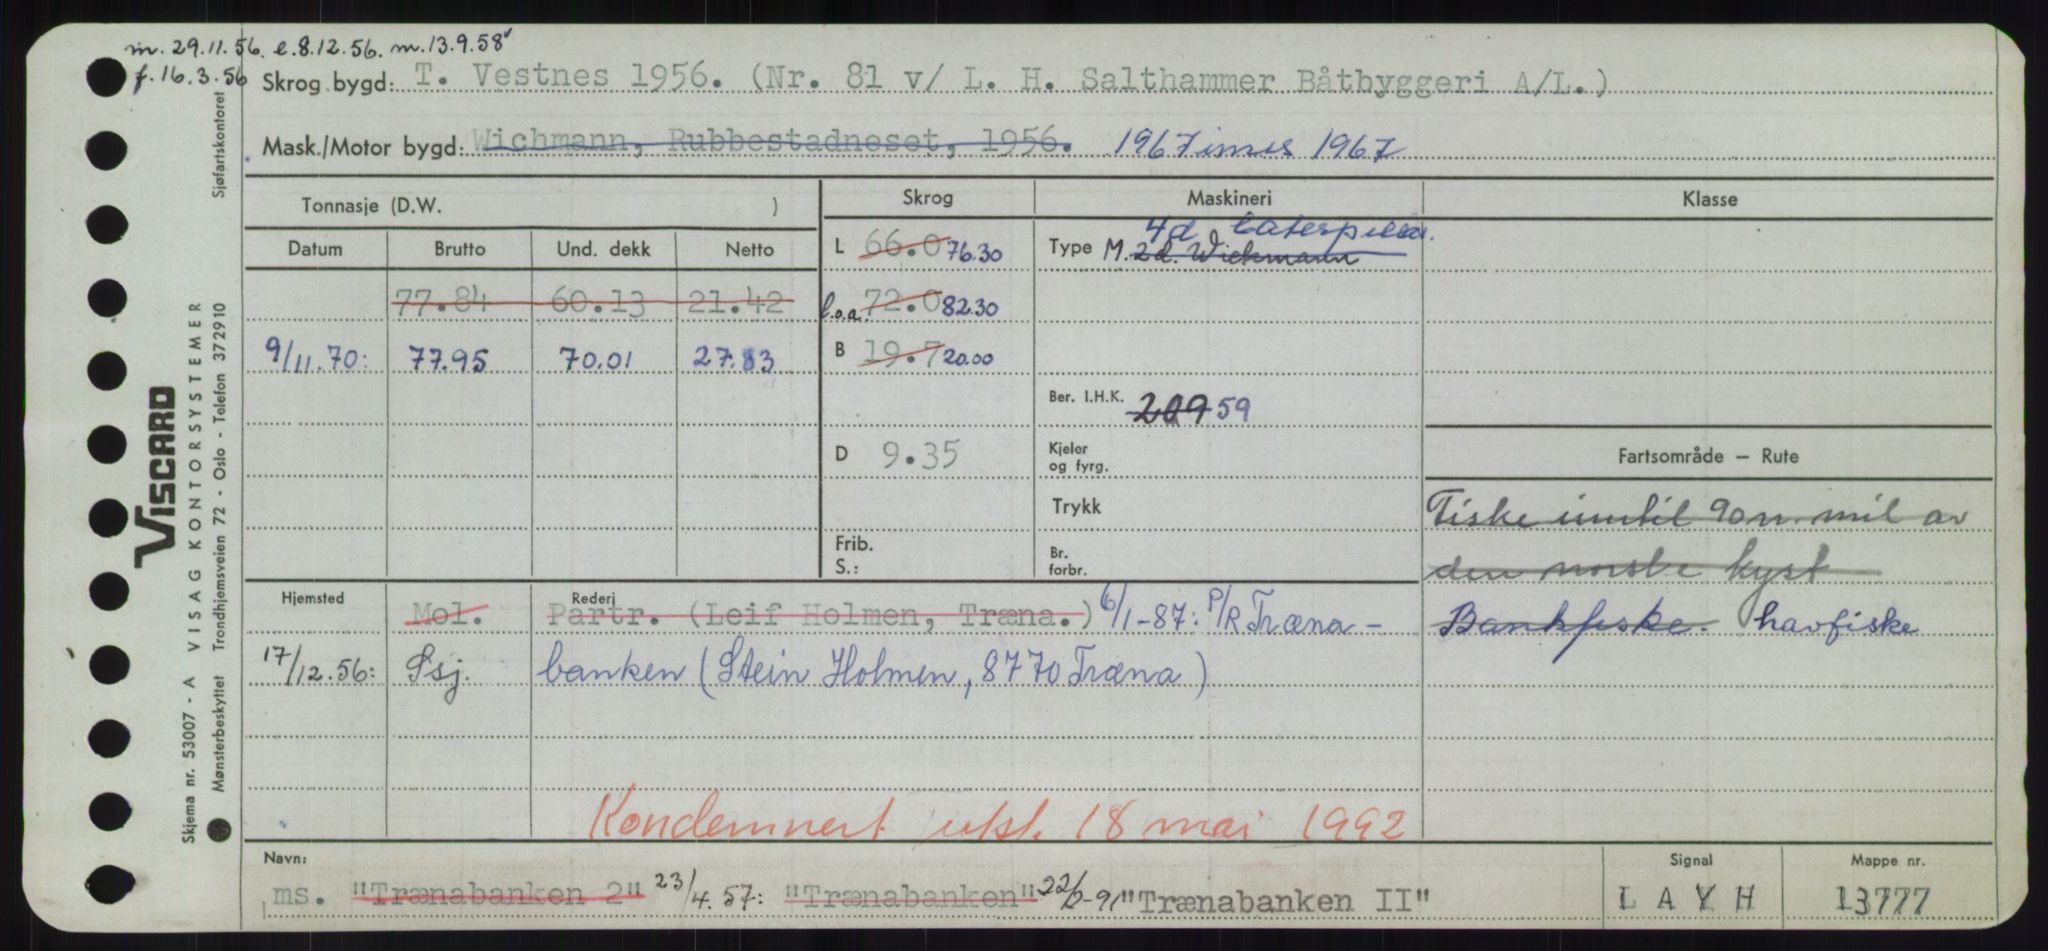 m. 29.11.56. e. 8.12.56. m. 13.9.58
f. 16.3.56
Skrog bygd: T. Vestnes 1956. (Nr. 81 v/ L. H. Salthammer Båtbyggeri A/L.)
Mask./Motor bygd: Wichmann, Rubbestadneset, 1956. 1967 inns 1967
Tonnasje (D.W. ) Skrog Maskineri Klasse
Datum Brutto Und. dekk Netto
L 66.0 76.30 Type M. 2d. Wichmann 4d Caterpillar.
77.84 60.13 21.42 l.o.a. 72.0 82.30
9/11.70: 77.95 70.01 27.83 B 19.7 20.00
Ber. I.H.K. 209 59
D 9.35 Kjeler og fyrg.
Fartsområde – Rute
Trykk
Fiske inntil 90 n. mil av
Frib.
S.:
Br. forbr.
den norske kyst
Hjemsted Rederi
Mol. Partr. (Leif Holmen, Træna.) 6/1-87: P/R Træna-
Bankfiske. havfiske
17/12.56: Ssj. banken (Stein Holmen, 8770 Træna)
Kondemnert utsl. 18 mai 1992
Navn: Signal Mappe nr.
ms. "Trænabanken 2" 23/4.57: "Trænabanken" 22/2-91 "Trænabanken II" LAYH 13777
VISCARD
Skjema nr. 53007 - A VISAG KONTORSYSTEMER
Mønsterbeskyttet Trondhjemsveien 72 - Oslo - Telefon 372910
Sjøfartskontoret